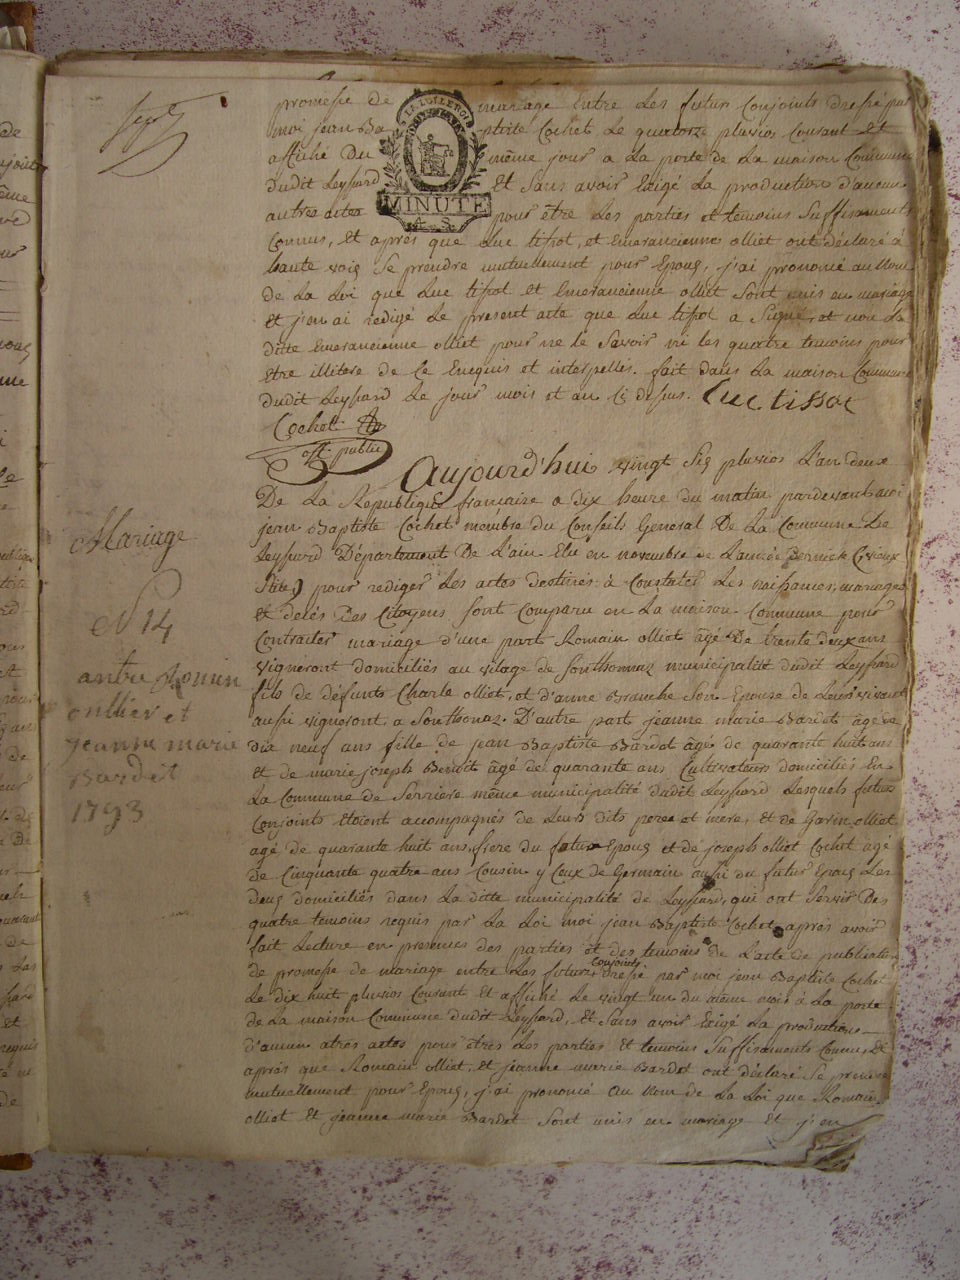 Sept
promesse de mariage Entre Les futur Conjoints dressé par
moi jean Baptiste Cochet Le quatorze pluvios Courant et
affiché Du même jour a La porte de La maison Commune
dudit Leyssard Et Sans avoir Exigé La production d'aucun
autres actes pour être Les parties et temoins Suffisaments
Connus, Et après que Luc tissot, et Emerancienne olliet ont déclaré à
haute voix Se prendre mutuellement pour Epoux, j'ai prononcé au Nom
de La Loi que Luc tissot et Emerancienne olliet Sont unis en mariage
et j'en ai redigé Le present acte que Luc tissot a Signé et non La
ditte Emerancienne olliet pour ne le Savoir ni les quatre temoins pour
Etre illitere de Ce Enequis et interpellés. fait dans La maison Commune
dudit Leyssard Le jour mois et an Ci dessus. Luc tissot
Cochet
off. public
Aujourd'hui vingt Six pluvios L'an deux
De La Republique francaise a dix heure du matin pardevant moi
jean Baptiste Cochet membre du Conseils General De La Commune de
Leyssard Département De L'ain Elu en novembre de L'année derniere (vieux
Stile) pour rediger Les actes destinés à Constater Les naissances, mariages
et décés Des Citoyens Sont Comparu en La maison Commune pour
Contracter mariage d'une part Romain olliet âgé De trente deux ans
vigneront domiciliés au vilage de Sonthonnaz municipalité dudit Leyssard
fils de défunts Charle olliet, et d'anne Branche Son Epouse de Leur vivant
aussi vigneront, a Sonthonaz. D'autre part jeanne marie Bardet âgé de
dix neuf ans fille de jean Baptiste Bardet âgé de quarante huit ans
et de marie joseph Benoit âgé de quarante ans Cultivateurs domiciliés En
La Commune de Serriere même municipalité dudit Leyssard Lesquels futur
Conjoints Etoient accompagnés de Leurs dits peres et mere, et de Garin olliet
agé de quarante huit ans, frere du futur Epoux et de joseph olliet Cochet âgé
de Cinquante quatre ans Cousin y Ceux de Germain aussi du futur Epoux Les
deux domiciliés dans La ditte municipalité de Leyssard, qui ont Servir Des
quatre temoins requis par La Loi moi jean Baptiste Cochet après avoir
fait Lecture en presences des parties et des temoins de L'acte de publication
de promesse de mariage entre Les futurs Conjoints dressé par moi jean Baptiste Cochet
Le dix huit pluvios Courant et affiché Le vingt un du même mois à La porte
de La maison Commune dudit Leyssard, et Sans avoir Exigé La productions
d'aucun atres actes pour êtres Les parties Et temoins Suffisaments Connus, Et
après que Romain olliet, et jeanne marie Bardet ont déclaré Se prendre
mutuellement pour Epoux, j'ai prononcé au Nom de La Loi que Romain
olliet Et jeanne marie Bardet Sont unis en mariage Et j'en
Mariage
N 14
antre Romin
ollier et
jeanne marie
Bardet
1793
MINUTE
4. S.